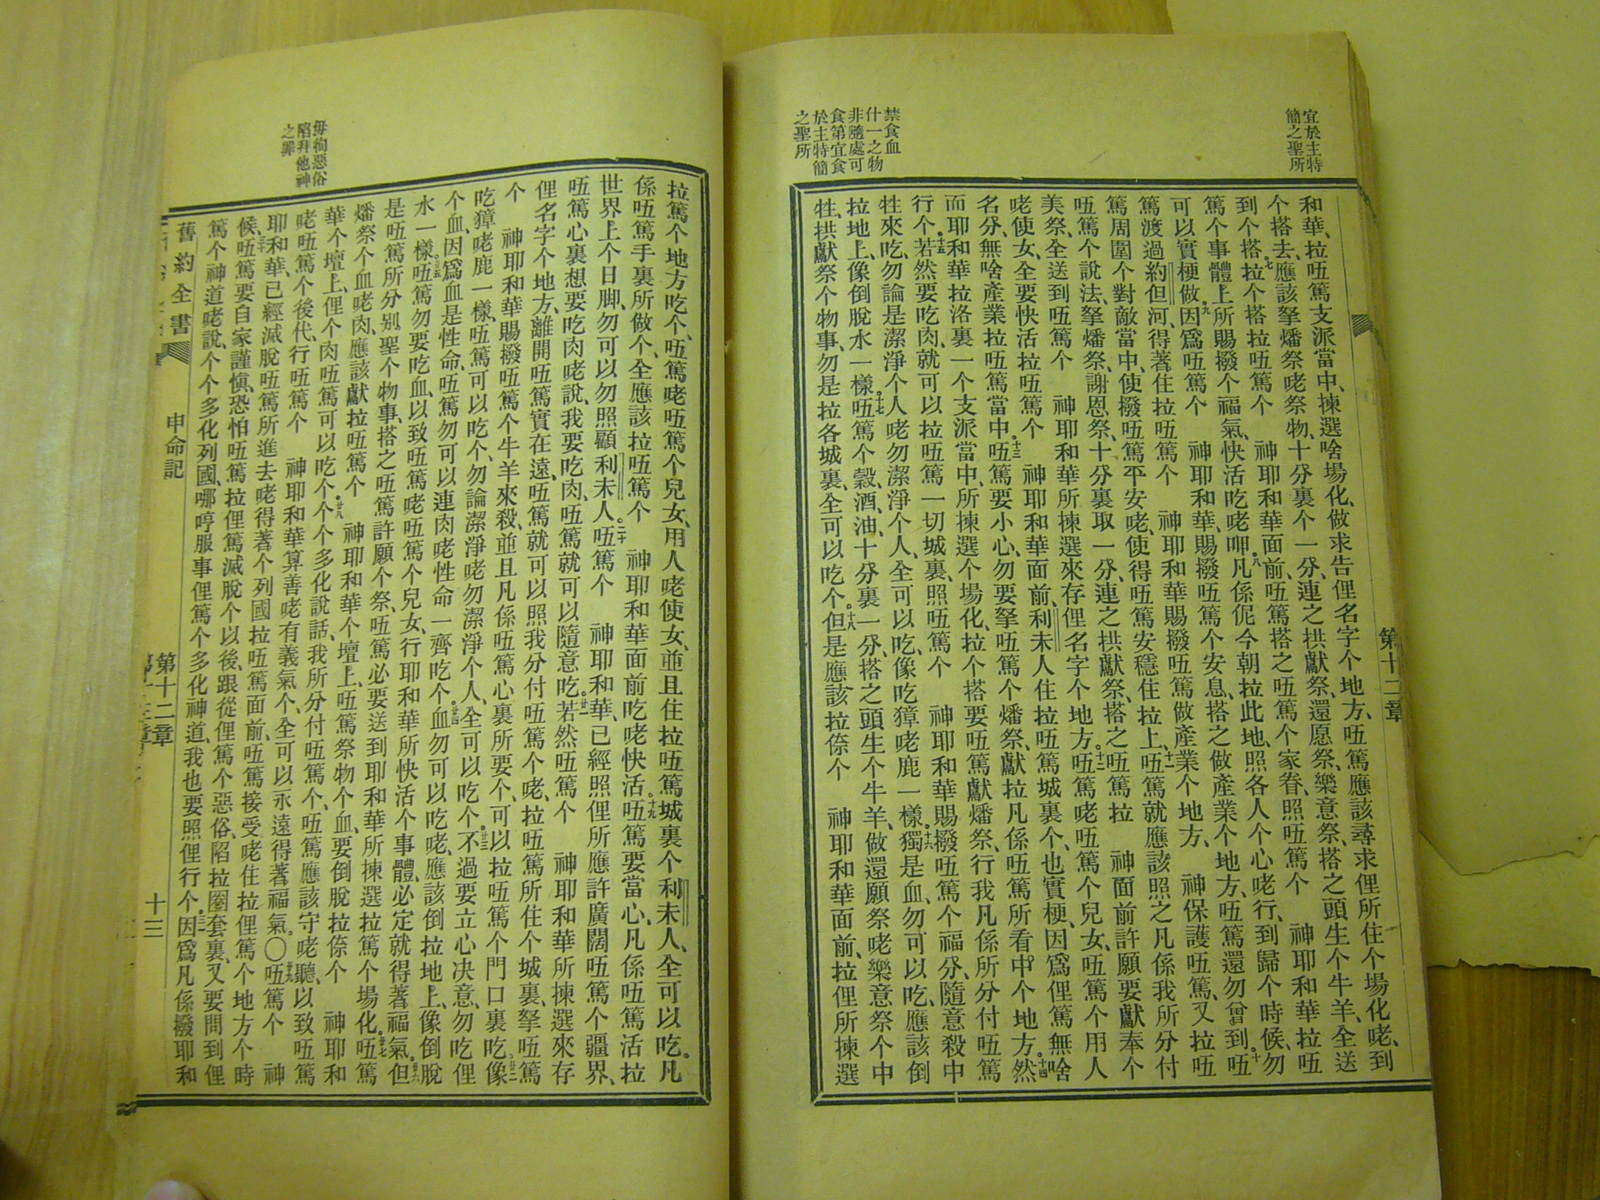 宜於主特
簡之聖所
禁食血
什一之物
非隨處可
食第宜食
於主特簡
之聖所
第十二章
和華、拉㕶篤支派當中、揀選啥場化、做求告俚名字个地方、㕶篤應該尋求俚所住个場化咾、到
个搭去、應該拏燔祭咾祭物、十分裏个一分、連之拱獻祭、還愿祭、樂意祭、搭之頭生个牛羊、全送
到个搭。七拉个搭拉㕶篤个　神耶和華面前、㕶篤搭之㕶篤个家眷、照㕶篤个　神耶和華拉㕶
篤个事體上、所賜撥个福氣、快活吃咾呷。八凡係伲今朝拉此地、照各人个心咾行、到歸个時候勿
可以實梗做。九因爲㕶篤个　神耶和華、賜撥㕶篤个安息、搭之做產業个地方、㕶篤還勿曾到。十㕶
篤渡過約但河、得著住拉㕶篤个　神耶和華賜撥㕶篤做產業个地方、　神保護㕶篤、又拉㕶
篤周圍个對敵當中、使撥㕶篤平安咾、使得㕶篤安穩住拉上、十一㕶篤就應該照之凡係我所分付
㕶篤个說法、拏燔祭、謝恩祭、十分裏取一分、連之拱獻祭、搭之㕶篤拉　神面前許願要獻奉个
美祭、全送到㕶篤个　神耶和華所揀選來存俚名字个地方。十二㕶篤咾㕶篤个兒女、㕶篤个用人
咾使女、全要快活拉㕶篤个　神耶和華面前、利未人住拉㕶篤城裏个、也實梗、因爲俚篤無啥
名分、無啥產業拉㕶篤當中。十三㕶篤要小心、勿要拏㕶篤个燔祭、獻拉凡係㕶篤所看中个地方。十四然
而耶和華拉洛裏一个支派當中、所揀選个場化、拉个搭要㕶篤獻燔祭、行我凡係所分付㕶篤
行个。十五若然要吃肉、就可以拉㕶篤一切城裏、照㕶篤个　神耶和華賜撥㕶篤个福分、隨意殺中
牲來吃、勿論是潔淨个人咾勿潔淨个人、全可以吃、像吃獐咾鹿一樣。十六獨是血、勿可以吃、應該倒
拉地上、像倒脫水一樣。十七㕶篤个穀、酒、油、十分裏一分、搭之頭生个牛羊、做還願祭咾樂意祭个中
牲、拱獻祭个物事、勿是拉各城裏、全可以吃个。十八但是應該拉倷个　神耶和華面前、拉俚所揀選
毋徇惡俗
陷拜他神
之罪
拉篤个地方吃个、㕶篤咾㕶篤个兒女、用人咾使女、並且住拉㕶篤城裏个利未人、全可以吃。凡
係㕶篤手裏所做个、全應該拉㕶篤个　神耶和華面前吃咾快活。十九㕶篤要當心、凡係㕶篤活拉
世界上个日脚、勿可以勿照顧利未人。二十㕶篤个　神耶和華、已經照俚所應許、廣闊㕶篤个疆界、
㕶篤心裏想要吃肉咾說、我要吃肉、㕶篤就可以隨意吃。廿一若然㕶篤个　神耶和華所揀選來存
俚名字个地方、離開㕶篤實在遠、㕶篤就可以照我分付㕶篤个咾、拉㕶篤所住个城裏、拏㕶篤
个　神耶和華賜撥㕶篤个牛羊來殺、並且凡係㕶篤心裏所要个、可以拉㕶篤个門口裏吃。廿二像
吃獐咾鹿一樣、㕶篤可以吃个、勿論潔淨咾勿潔淨个人、全可以吃个。廿三不過要立心决意、勿吃俚
个血、因爲血是性命、㕶篤勿可以連肉咾性命一齊吃个。廿四血勿可以吃咾、應該倒拉地上、像倒脫
水一樣。廿五㕶篤勿要吃血、以致㕶篤咾㕶篤个兒女、行耶和華所快活个事體、必定就得著福氣。廿六但
是㕶篤所分别聖个物事、搭之㕶篤許願个祭、㕶篤必要送到耶和華所揀選拉篤个場化。廿七㕶篤
燔祭个血咾肉、應該獻拉㕶篤个　神耶和華个壇上、㕶篤祭物个血、要倒脫拉倷个　神耶和
華个壇上、俚个肉㕶篤可以吃个。廿八个个多化說話、我所分付㕶篤个、㕶篤應該守咾聽、以致㕶篤
咾㕶篤个後代、行㕶篤个　神耶和華算善咾有義氣个、全可以永遠得著福氣。〇廿九㕶篤个　神
耶和華、已經滅脫㕶篤所進去咾得著个列國拉㕶篤面前、㕶篤接受咾住拉俚篤个地方个時
候、三十㕶篤要自家謹愼、恐怕㕶篤拉俚篤滅脫个以後、跟從俚篤个惡俗、陷拉圈套裏、又要問到俚
篤个神道咾說、个个多化列國、哪哼服事俚篤个多化神道、我也要照俚行个。三一因爲凡係撥耶和
舊約全書
申命記
第十二章
十三